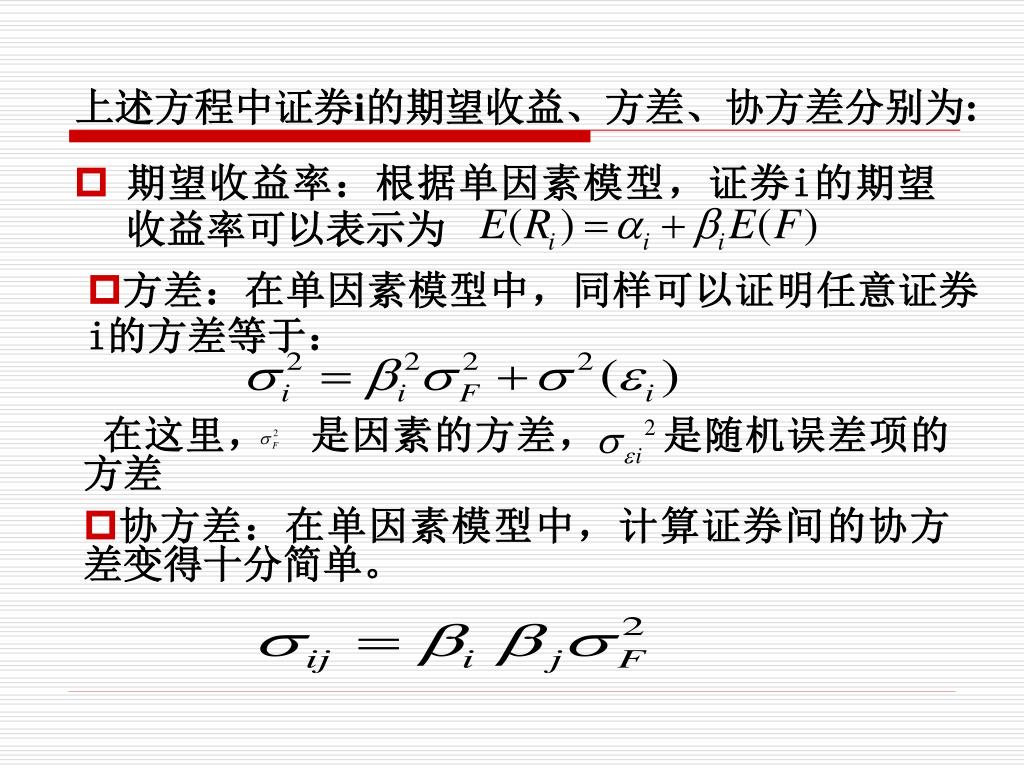 上述方程中证券i的期望收益、方差、协方差分别为:
期望收益率：根据单因素模型，证券i的期望
收益率可以表示为 E(R_i) = α_i + β_i E(F)
方差：在单因素模型中，同样可以证明任意证券
i的方差等于：
σ_i^2 = β_i^2 σ_F^2 + σ^2(ε_i)
在这里，σ_F^2 是因素的方差，σ_{εi}^2 是随机误差项的
方差
协方差：在单因素模型中，计算证券间的协方
差变得十分简单。
σ_{ij} = β_i β_j σ_F^2